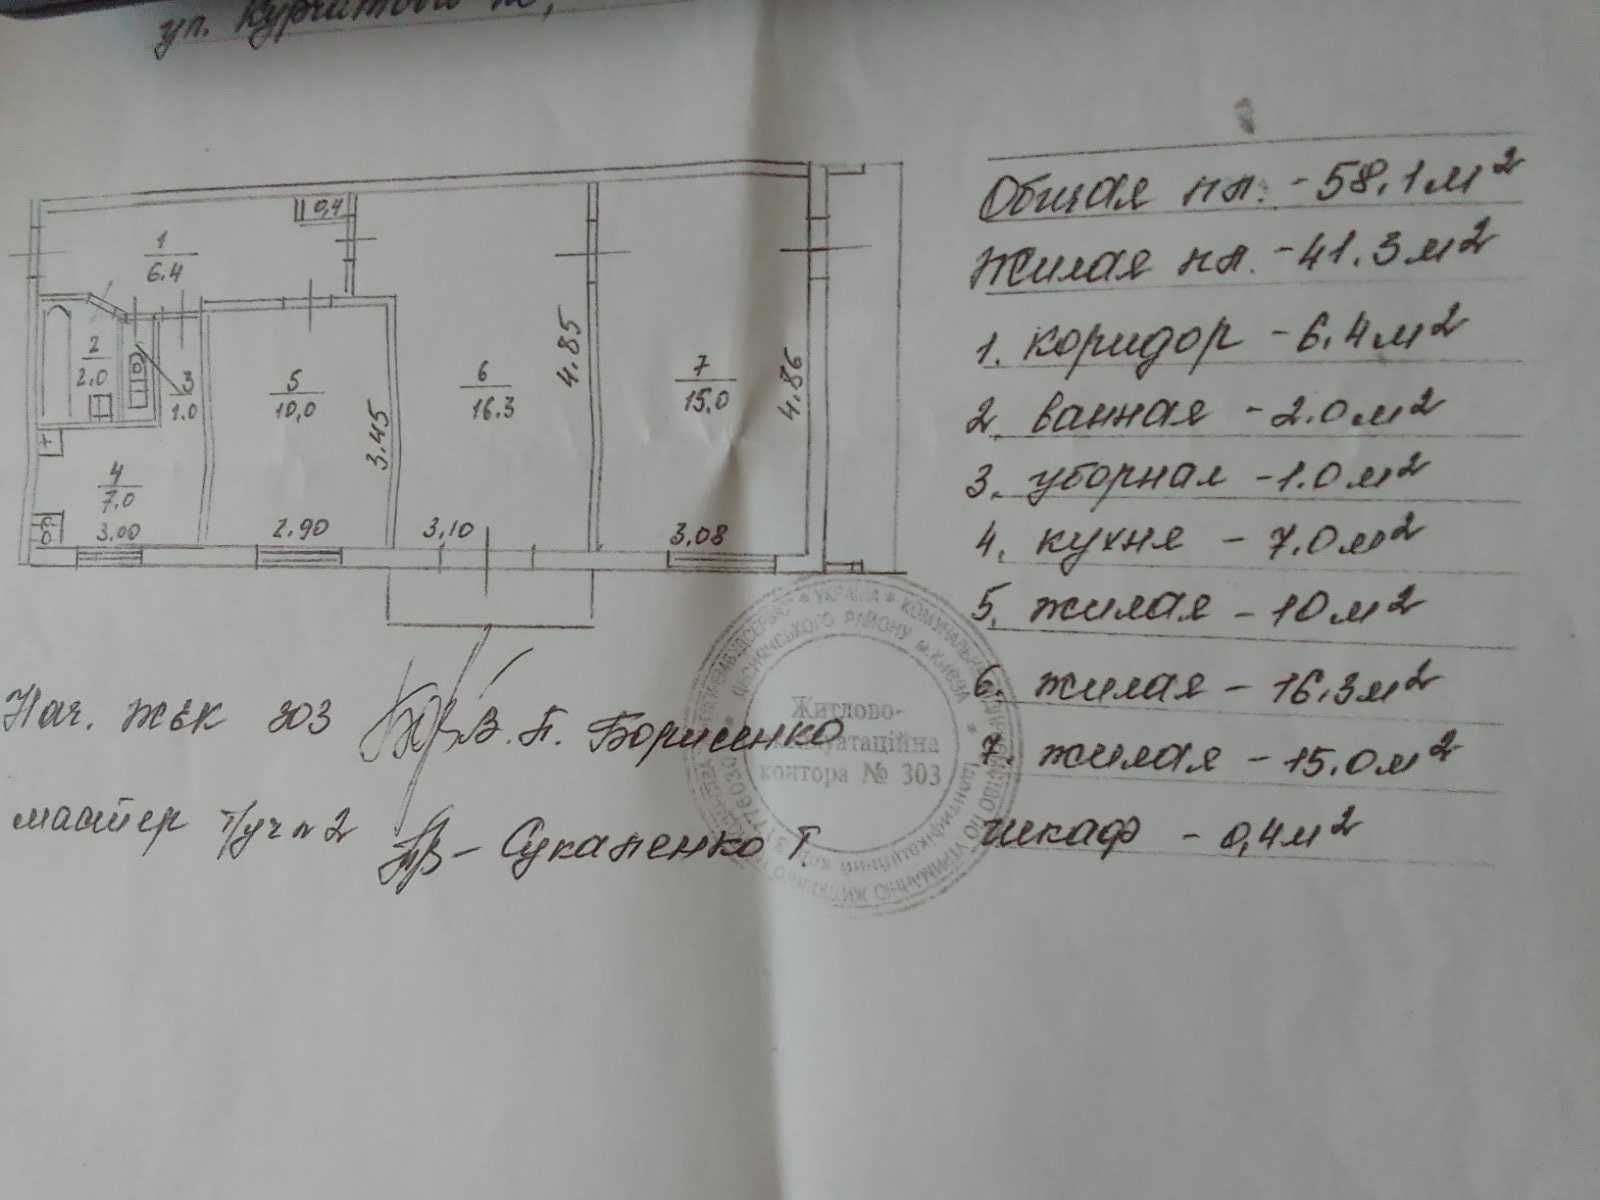 ул. Курчатова
0,4
1
6.4
2
2.0
3
1.0
4
7.0
3.00
5
10,0
3.45
2.90
6
16.3
4.85
3,10
7
15,0
4.86
3.08
Общая пл. - 58,1 м2
Жилая пл. - 41.3 м2
1. коридор - 6,4 м2
2. ванная - 2.0 м2
3. уборная - 1.0 м2
4. кухня - 7.0 м2
5. жилая - 10 м2
6. жилая - 16.3 м2
7. жилая - 15.0 м2
шкаф - 0,4 м2
Нач. ЖЕК 303 В.П. Борисенко
мастер т/уч n 2 - Сукапенко Т
* УКРАЇНА * КОМУНАЛЬНЕ ПІДПРИЄМСТВО ПО УТРИМАННЮ ЖИТЛОВОГО
ДЕСНЯНСЬКОГО РАЙОНУ м. КИЄВА *
Ідентифікаційний код
Житлово-
експлуатаційна
контора № 303